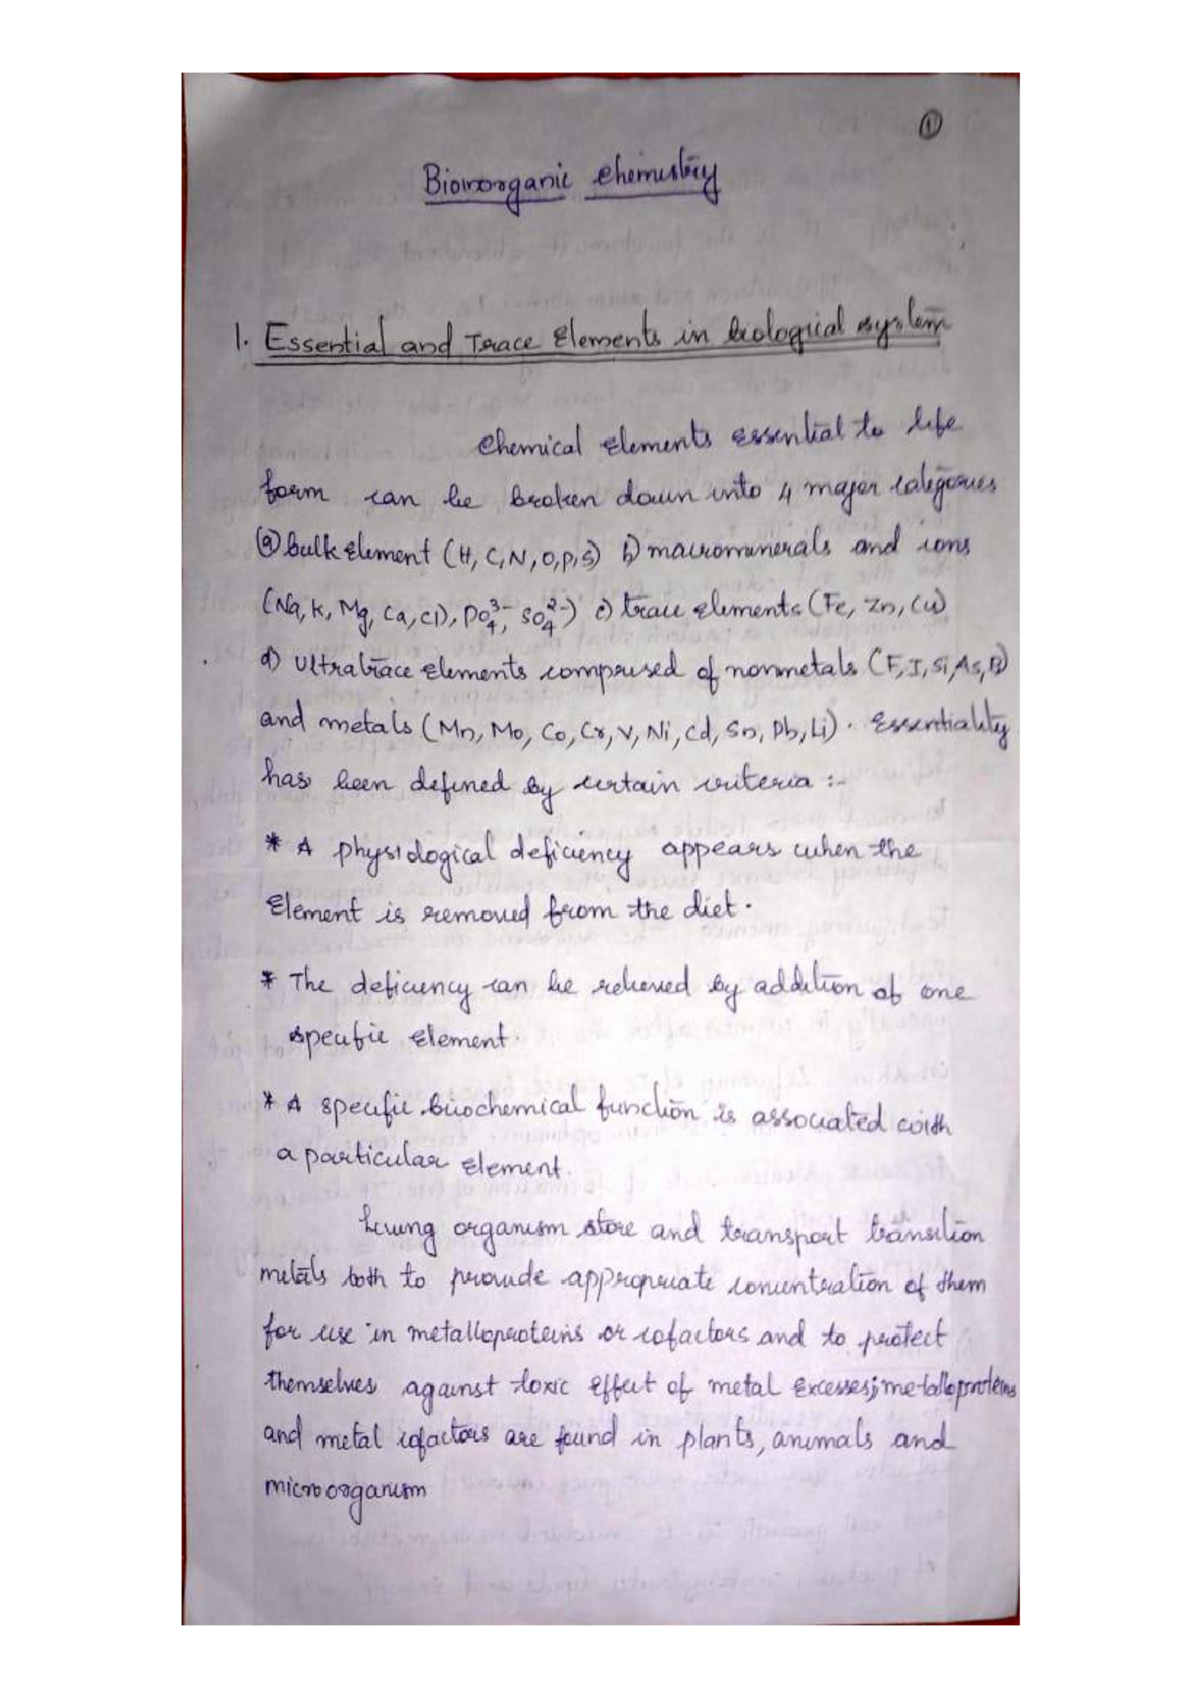 1
Bioinorganic chemistry
1. Essential and Trace Elements in biological system
Chemical elements essential to life
form can be broken down into 4 major categories
(a) bulk element (H, C, N, O, P, S) b) macrominerals and ions
(Na, K, Mg, Ca, Cl), PO₄³⁻, SO₄²⁻) c) trace elements (Fe, Zn, Cu)
d) Ultratrace elements comprised of nonmetals (F, I, Si, As, B)
and metals (Mn, Mo, Co, Cr, V, Ni, Cd, Sn, Pb, Li). Essentiality
has been defined by certain criteria :-
* A physiological deficiency appears when the
Element is removed from the diet.
* The deficiency can be relieved by addition of one
specific element.
* A specific biochemical function is associated with
a particular element.
Living organism store and transport transition
metals both to provide appropriate concentration of them
for use in metalloproteins or cofactors and to protect
themselves against toxic effect of metal excesses; metalloproteins
and metal cofactors are found in plants, animals and
microorganism